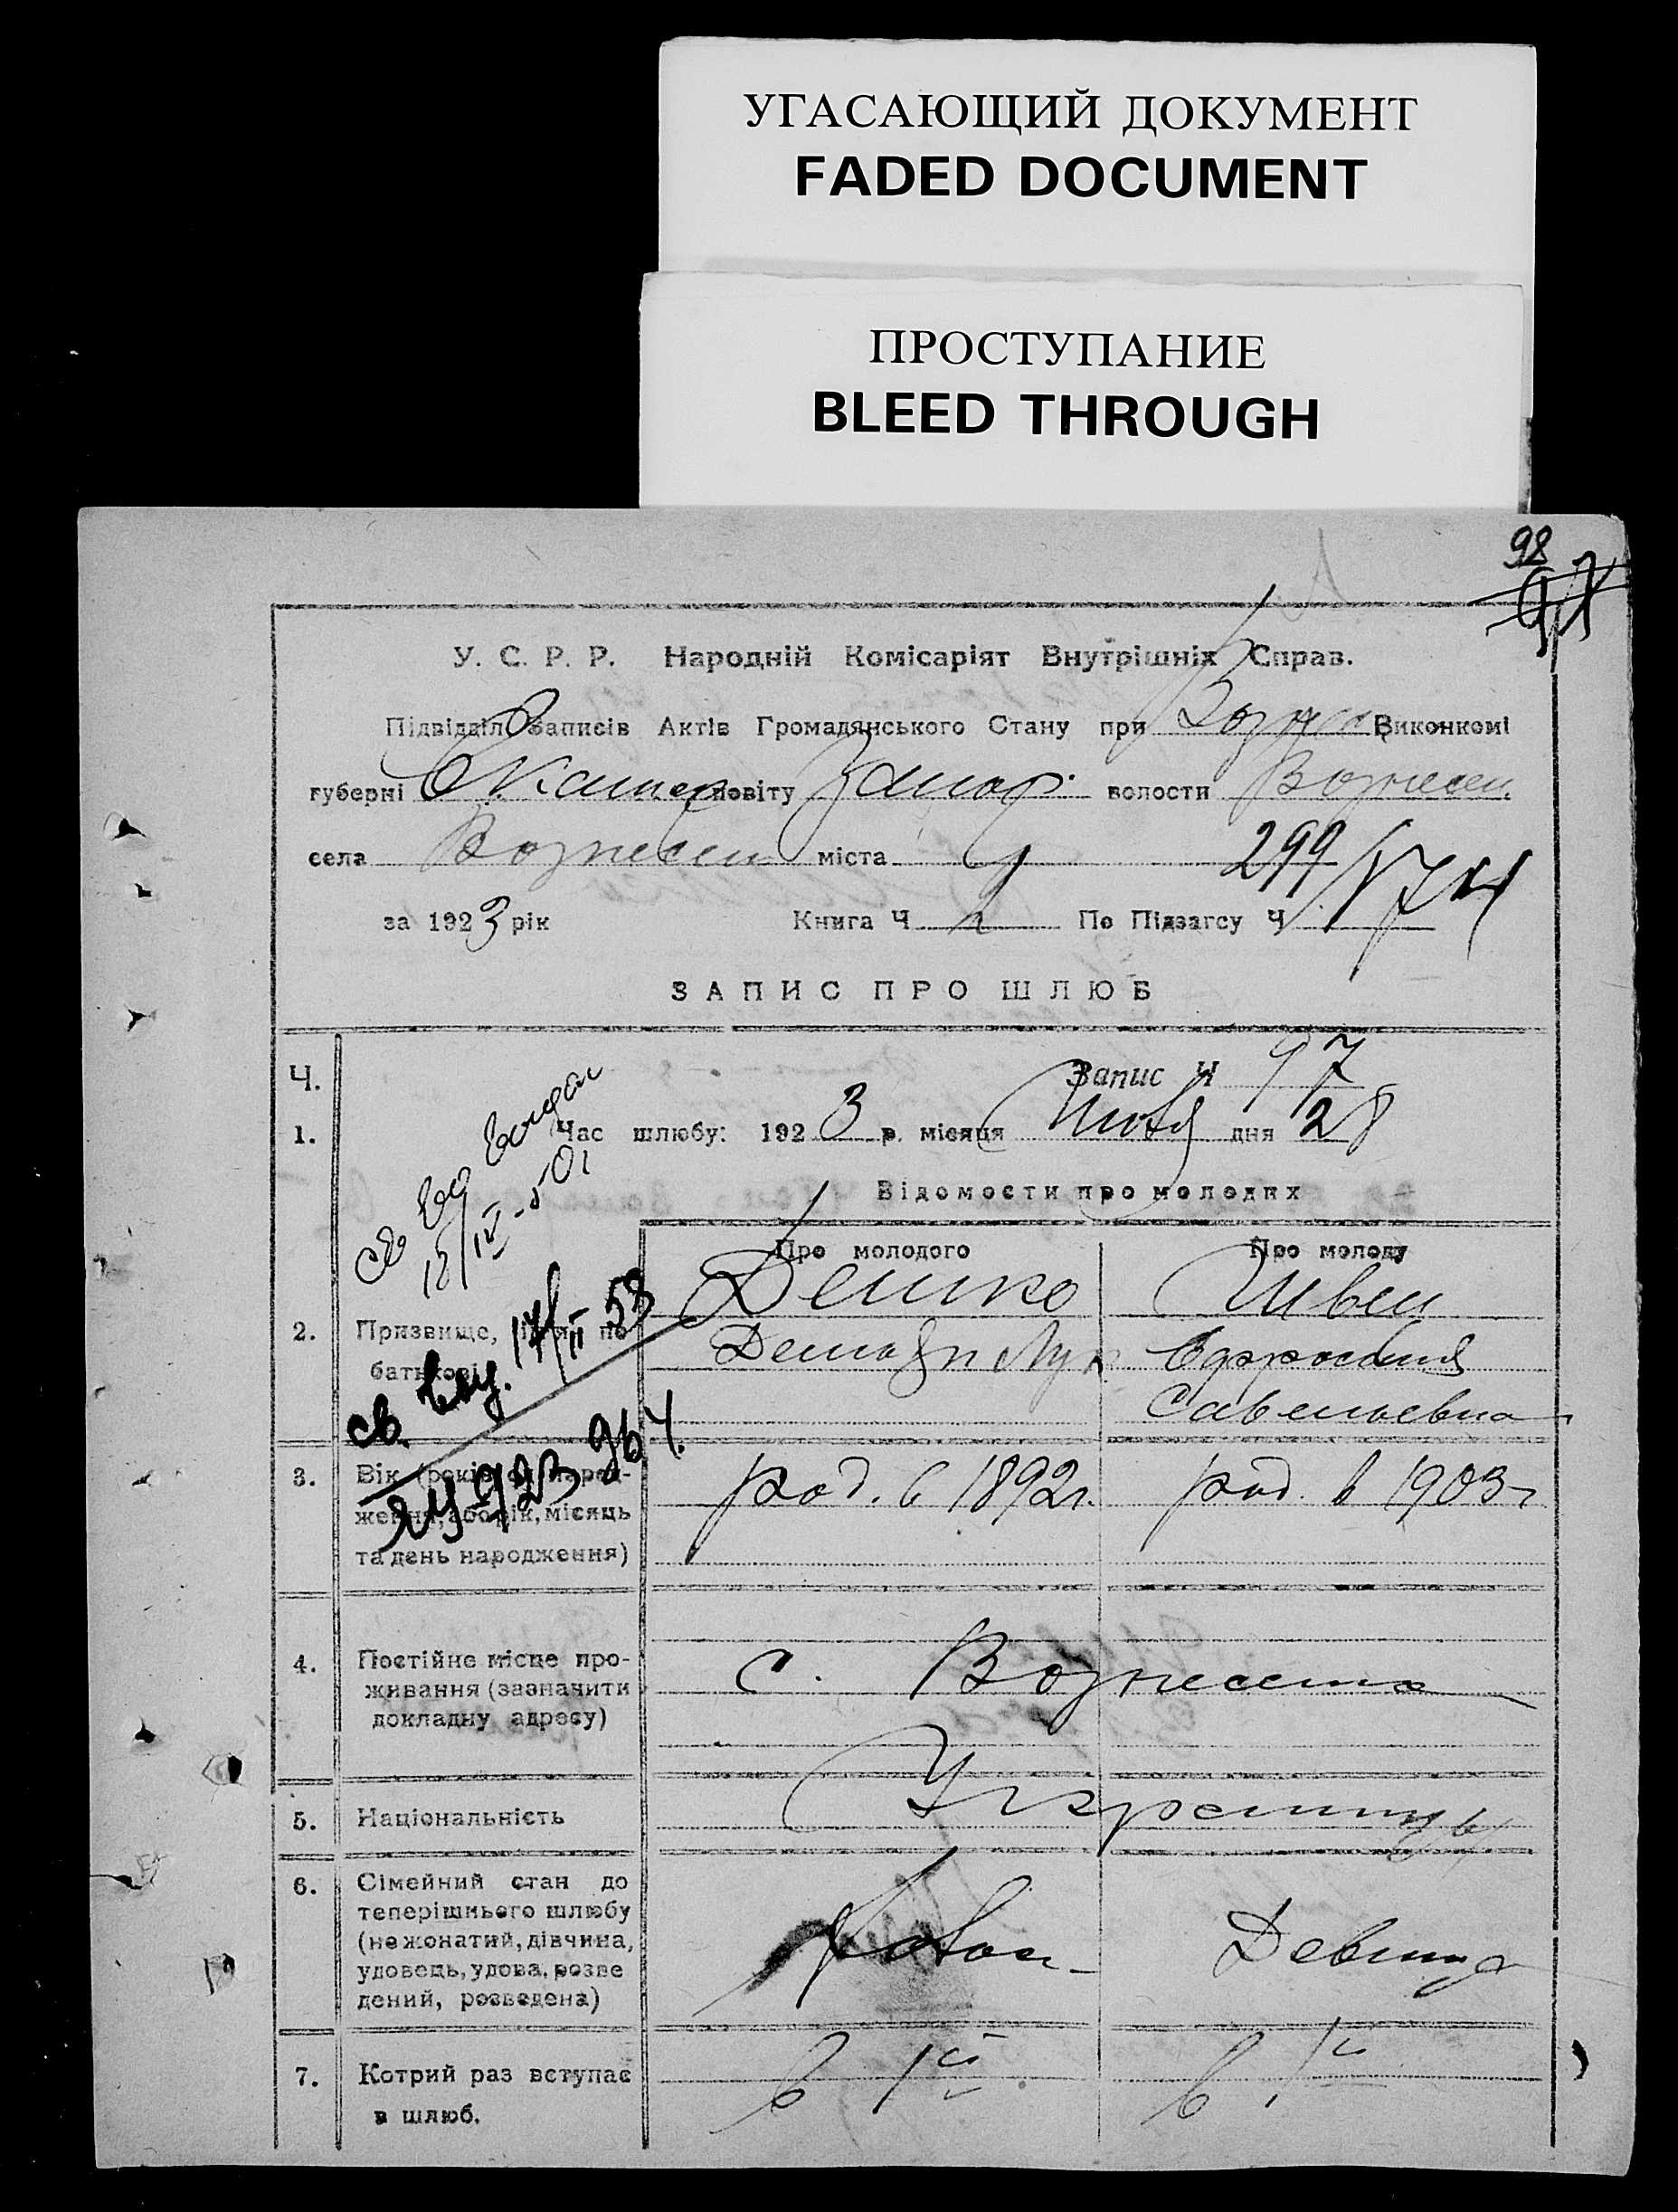 УГАСАЮЩИЙ ДОКУМЕНТ
FADED DOCUMENT
ПРОСТУПАНИЕ
BLEED THROUGH
98
У. С. Р. Р. Народній Комісаріят Внутрішніх Справ.
Підвідділ Записів Актів Громадянського Стану при Виконкомі
губерні Екатер повіту Запор. волости Вознесен.
села Вознесен міста
299
за 1923 рік Книга Ч По Підзагсу Ч
ЗАПИС ПРО ШЛЮБ
Ч. Запис Ч 97
1. Час шлюбу: 1923 р. місяця дня 28
Відомости про молодих
Про молодого Про молоду
Демко Швец
2. Призвище, імя, по батькові
Ефросиния
Савельевна
св. выд. 17/II 58
3. Вік (років од народ-
ження, або рік, місяць
та день народження)
род. в 1892 г. род. в 1903 г
4. Постійне місце про-
живання (зазначити
докладну адресу)
с. Вознесенка
5. Національність Украинцы
6. Сімейний стан до
теперішнього шлюбу
(не жонатий, дівчина,
удовець, удова, розве
дений, розведена)
Девица
7. Котрий раз вступає
в шлюб.
в 1й в 1й